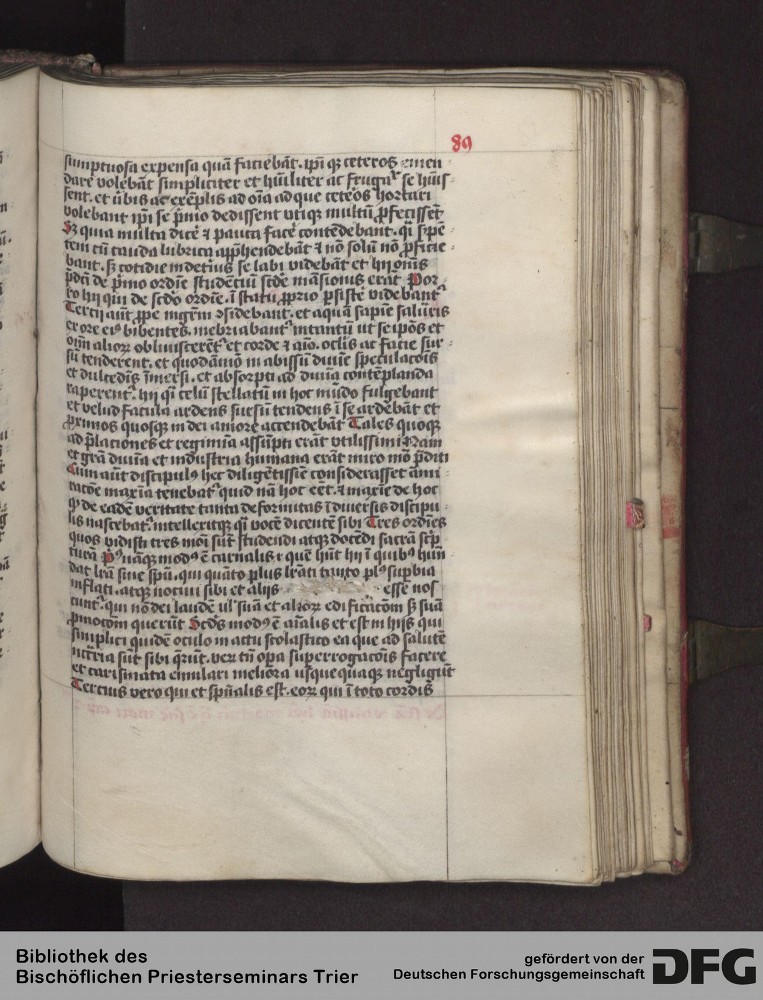 89
sumptuosa expensa quā faciebāt. ipī qꝫ ceteros emen
dare volebāt simpliciter et hūiliter ac frugaꝉ se hūis
sent. et ūbis ac exēplis ad oīa ad que ceteōs hortari
volebant ipī se p̄mio dedissent utiqꝫ multū ꝓfecissēt
Sꝫ quia multa dicē ⁊ pauca facē contēdebant. qī sepē
tem cū cauda lubrica app̄hendebāt ⁊ nō solū nō ꝓficie
bant. sꝫ cotidie in detiꝰus se labi videbāt et hij om̄s
p̄dcī de p̄mo ordīe studēciū scde māsionis erāt Por
ro hij qui de scdo ordīe. ī statu ꝓprio ꝑsistē videbantᷣ
Tercij aūt ꝓpe ingrem ꝯsidebant. et aquā sapiē salūris
ex ore eiꝰ bibentes. inebriabantᷣ intantū ut se ipōs et
om̄ alioꝝ obliuiscerētᷣ et corde ⁊ aīo. oclīs ac facie sur
sū tenderent. et quodāmō in abissū diuīe speculacōīs
et dulcedīs īmersi. et absorpti ad diuīa contēplanda
raperentᷣ. hij qī celū stellatū in hoc mūdo fulgebant
et velud facula ardens sursū tendens ī se ardebāt et
ꝓximos quosqꝫ in dei amorē accendebāt Tales quoqꝫ
ad p̄laciones et regimīa assūpti erāt vtilissimi Nam
et grā diuīa et industria humana erāt miro mō p̄diti
Cum aūt discipulꝰ hec diligētissīe considerasset āmi
racōe maxīa tenebatᷣ quid nā hoc eēt. ⁊ maxīe de hoc
ꝙ de eadē veritate tanta deformitas ī diuersis discipu
lis nascebatᷣ intellexitqꝫ qī vocē dicentē sibi Tres ordīes
quos vidisti tres modi sūt studendi atqꝫ docēdi sacrā scp̄
turā Pꝰ nāqꝫ modꝰ ē carnalis quē hn̄t hij ī quibꝰ hūn
dat lrā sine spū. qui quāto plus lrāti tanto plꝰ supbia
inflati. atqꝫ nociui sibi et alijs esse nos
cuntᷣ. qui nō dei laudē uꝉ suā et alioꝝ edificacōm sꝫ suā
ꝓmocōm querūt Scdꝰs modꝰ ē aīalis et est in hijs qui
simplici quidē oculo in actu scolastico ea que ad salutē
necͨria sūt sibi q̄rūt. veꝝ tn̄ oꝑa superrogacōīs facere
et carismata emulari meliora usquequaqꝫ negligūt
Tercius vero qui et spūalis est. eoꝝ qui ī toto cordis
Bibliothek des
Bischöflichen Priesterseminars Trier
gefördert von der
Deutschen Forschungsgemeinschaft
DFG